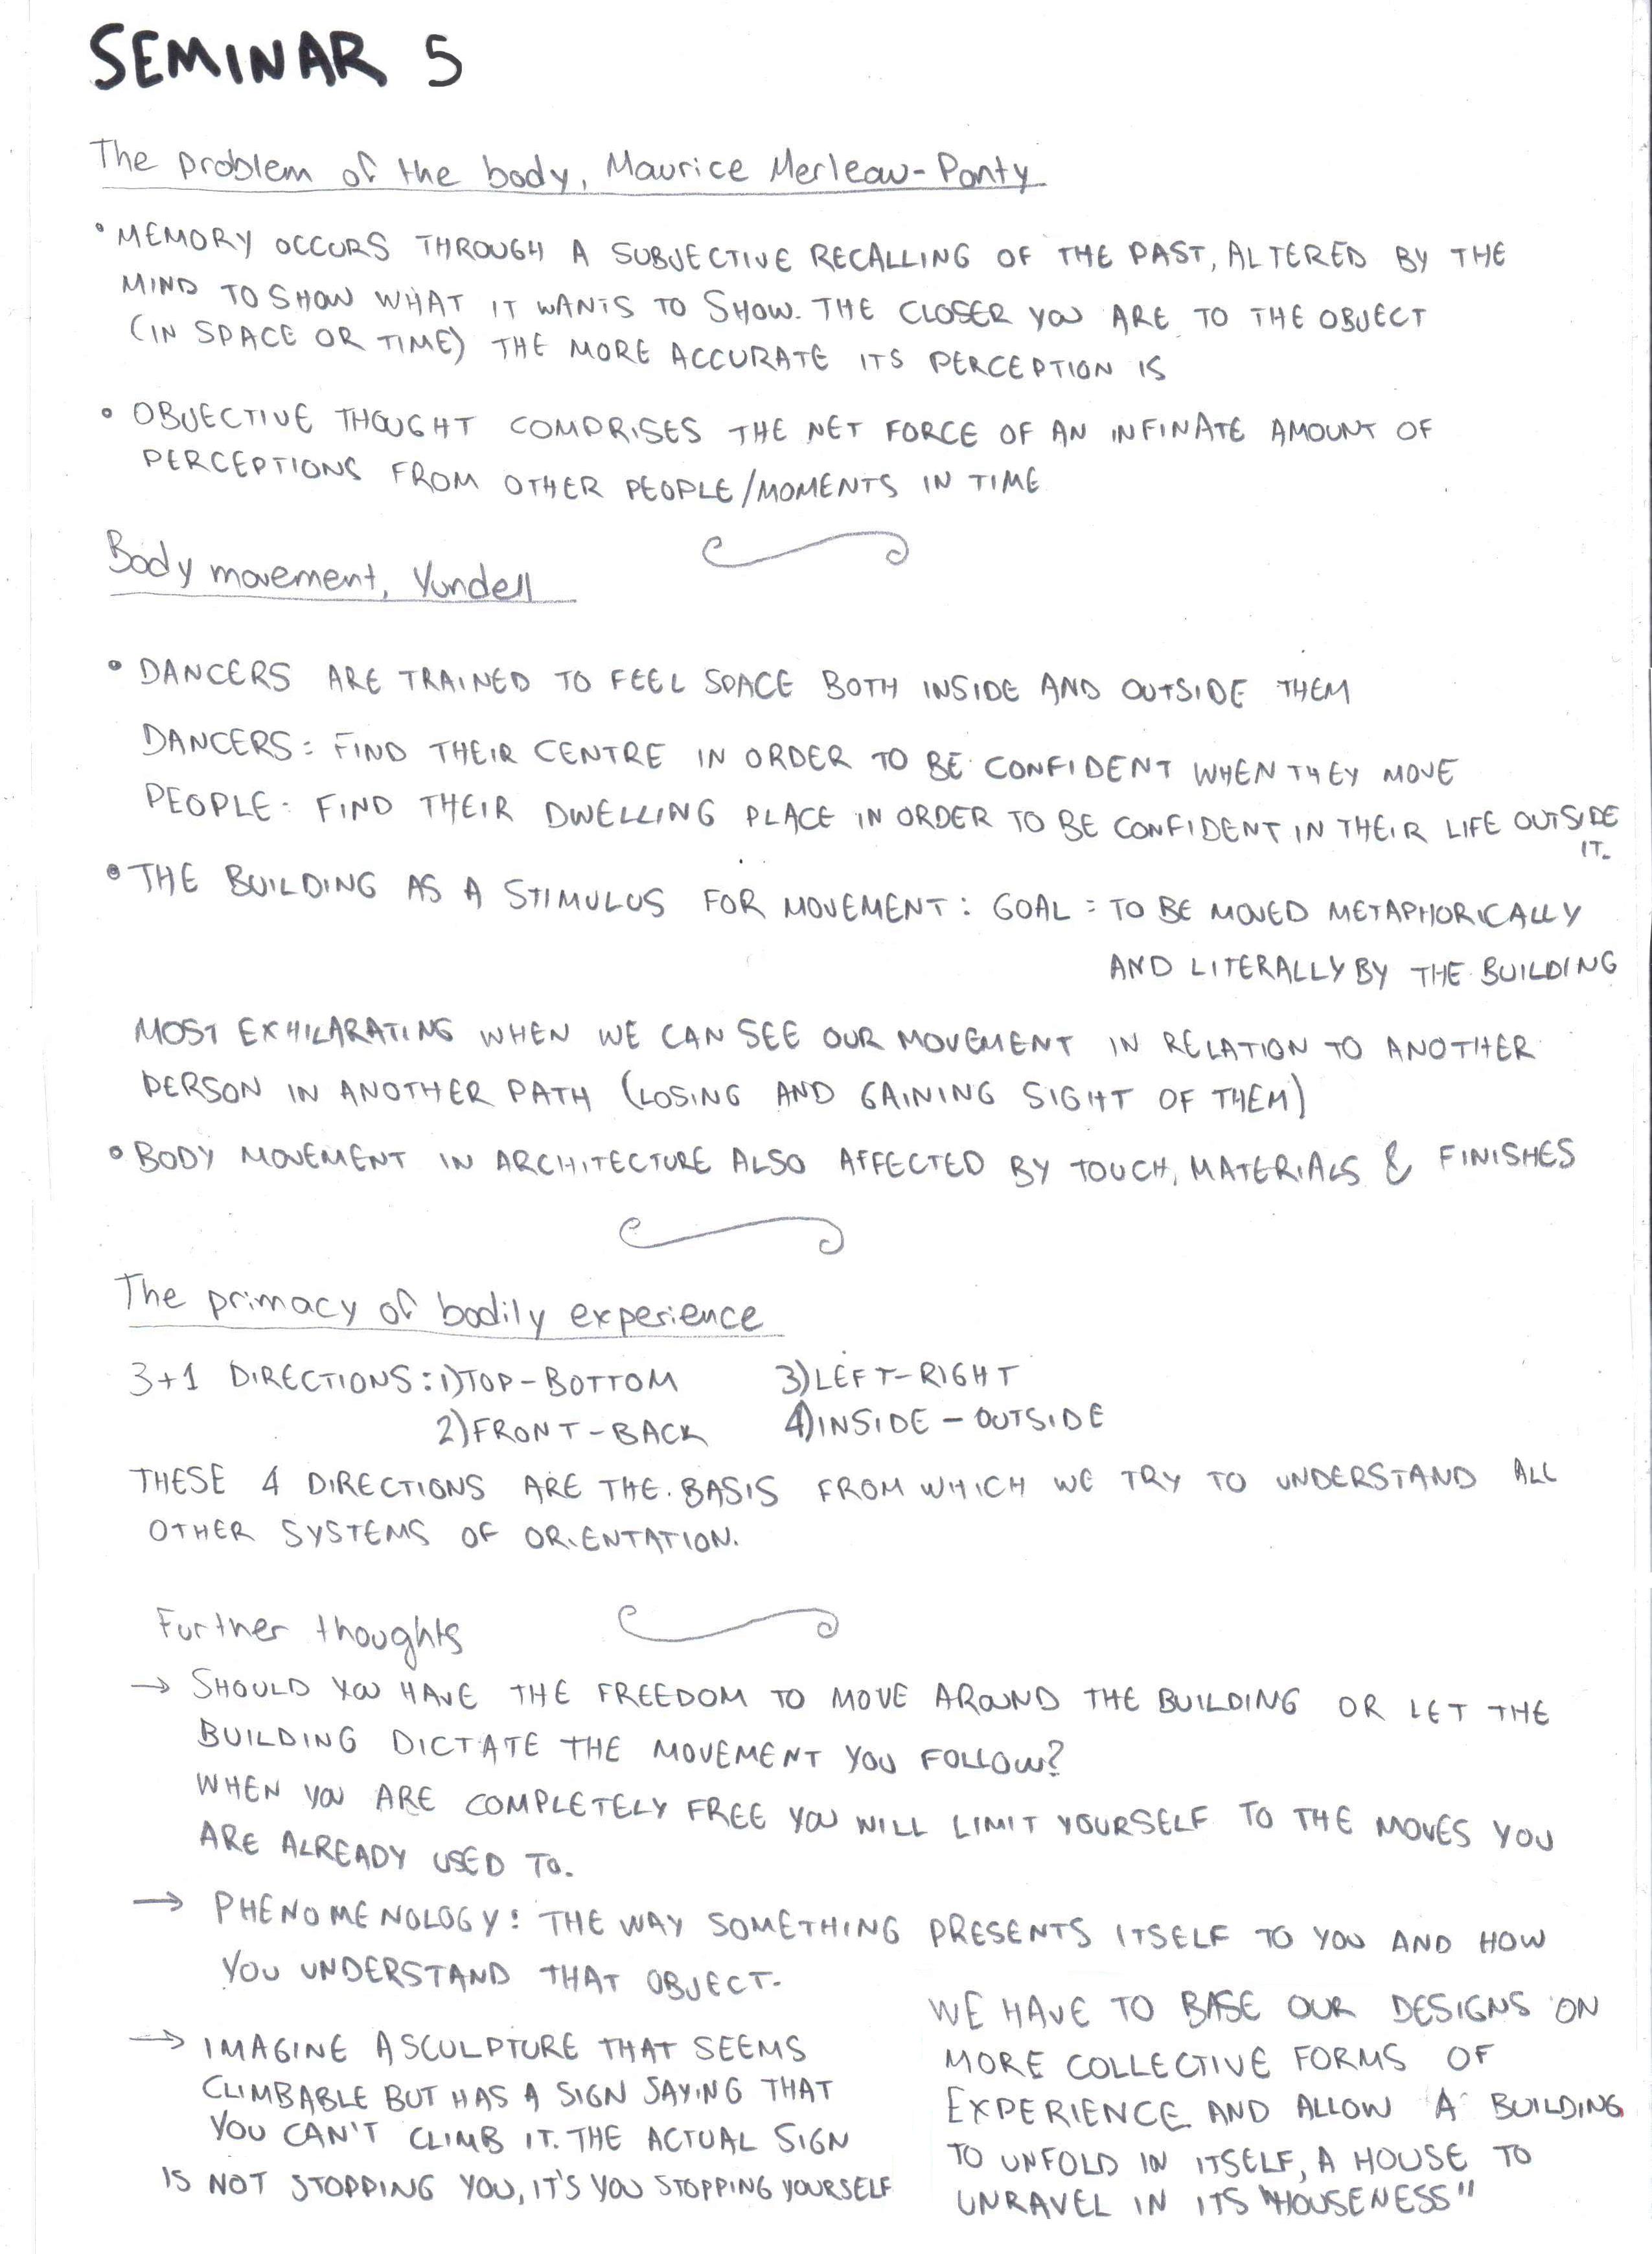 SEMINAR 5
The problem of the body, Maurice Merleau-Ponty
• MEMORY OCCURS THROUGH A SUBJECTIVE RECALLING OF THE PAST, ALTERED BY THE
MIND TO SHOW WHAT IT WANTS TO SHOW. THE CLOSER YOU ARE TO THE OBJECT
(IN SPACE OR TIME) THE MORE ACCURATE ITS PERCEPTION IS
• OBJECTIVE THOUGHT COMPRISES THE NET FORCE OF AN INFINATE AMOUNT OF
PERCEPTIONS FROM OTHER PEOPLE/MOMENTS IN TIME
Body movement, Yundell
• DANCERS ARE TRAINED TO FEEL SPACE BOTH INSIDE AND OUTSIDE THEM
DANCERS: FIND THEIR CENTRE IN ORDER TO BE CONFIDENT WHEN THEY MOVE
PEOPLE: FIND THEIR DWELLING PLACE IN ORDER TO BE CONFIDENT IN THEIR LIFE OUTSIDE
IT.
• THE BUILDING AS A STIMULUS FOR MOVEMENT: GOAL = TO BE MOVED METAPHORICALLY
AND LITERALLY BY THE BUILDING
MOST EXHILARATING WHEN WE CAN SEE OUR MOVEMENT IN RELATION TO ANOTHER
PERSON IN ANOTHER PATH (LOSING AND GAINING SIGHT OF THEM)
• BODY MOVEMENT IN ARCHITECTURE ALSO AFFECTED BY TOUCH, MATERIALS & FINISHES
The primacy of bodily experience
3+1 DIRECTIONS: 1)TOP-BOTTOM 3)LEFT-RIGHT
2)FRONT-BACK 4)INSIDE-OUTSIDE
THESE 4 DIRECTIONS ARE THE BASIS FROM WHICH WE TRY TO UNDERSTAND ALL
OTHER SYSTEMS OF ORIENTATION.
Further thoughts
→ SHOULD YOU HAVE THE FREEDOM TO MOVE AROUND THE BUILDING OR LET THE
BUILDING DICTATE THE MOVEMENT YOU FOLLOW?
WHEN YOU ARE COMPLETELY FREE YOU WILL LIMIT YOURSELF TO THE MOVES YOU
ARE ALREADY USED TO.
→ PHENOMENOLOGY: THE WAY SOMETHING PRESENTS ITSELF TO YOU AND HOW
YOU UNDERSTAND THAT OBJECT.
→ IMAGINE A SCULPTURE THAT SEEMS
CLIMBABLE BUT HAS A SIGN SAYING THAT
YOU CAN'T CLIMB IT. THE ACTUAL SIGN
IS NOT STOPPING YOU, IT'S YOU STOPPING YOURSELF
WE HAVE TO BASE OUR DESIGNS ON
MORE COLLECTIVE FORMS OF
EXPERIENCE AND ALLOW A BUILDING
TO UNFOLD IN ITSELF, A HOUSE TO
UNRAVEL IN ITS "HOUSENESS"